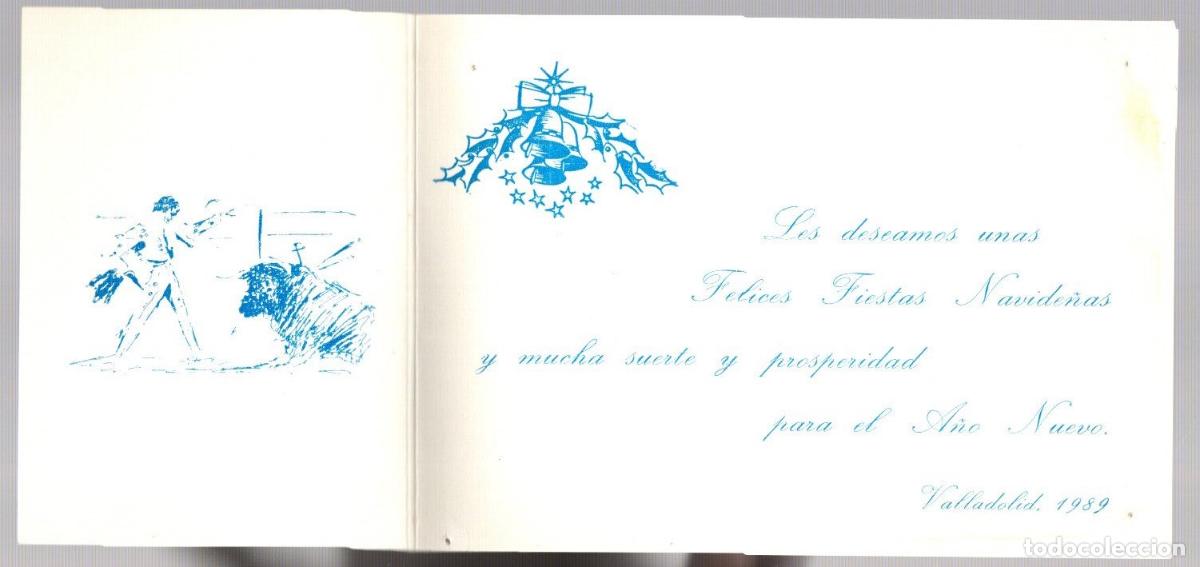 Les deseamos unas
Felices Fiestas Navideñas
y mucha suerte y prosperidad
para el Año Nuevo.
Valladolid, 1989
todocoleccion